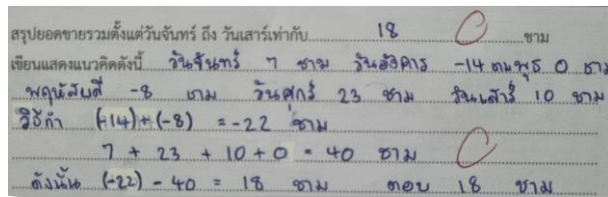 สรุปยอดขายรวมตั้งแต่วันจันทร์ ถึง วันเสาร์เท่ากับ 18 ชาม
เขียนแสดงแนวคิดดังนี้ วันจันทร์ 7 ชาม วันอังคาร -14 ชาม พุธ 0 ชาม
พฤหัสบดี -8 ชาม วันศุกร์ 23 ชาม วันเสาร์ 10 ชาม
วิธีทำ (-14)+(-8) = -22 ชาม
7 + 23 + 10 + 0 = 40 ชาม
ดังนั้น (-22) - 40 = 18 ชาม ตอบ 18 ชาม